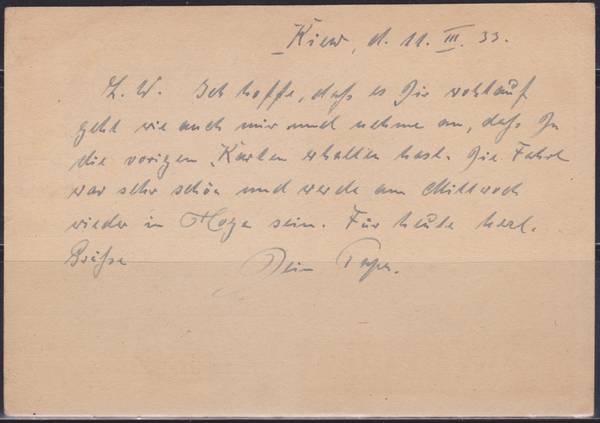 Kiew, d. 11. III. 33.
L. W. Ich hoffe, daß es Dir wohlauf
geht wie auch mir und nehme an, daß Du
die vorigen Karten erhalten hast. Die Fahrt
war sehr schön und werde am Mittwoch
wieder in sein. Für heute herzl.
Grüße Dein Papa.